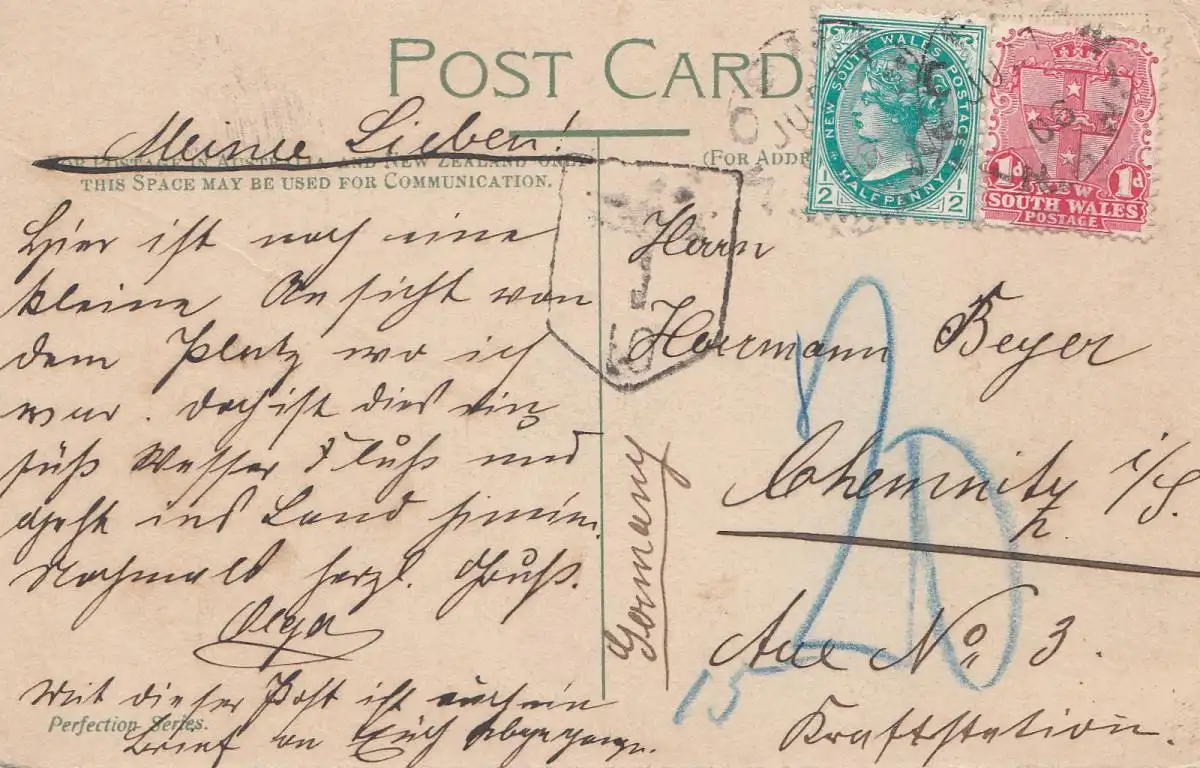 POST CARD
Meine Lieben!
FOR POSTAGE IN AUSTRALIA, AND NEW ZEALAND ONLY
THIS SPACE MAY BE USED FOR COMMUNICATION.
(FOR ADDR
Hier ist noch eine
kleine Ansicht von
dem Platz wo ich
war. Doch ist dies ein
süß Wasser Fluß und
geht ins Land hinein.
Nochmals herzl. Gruß.
Olga
Mit dieser Post ist auch ein
Brief an Euch abgegangen.
Perfection Series.
Germany
Herrn
Herrmann Beyer
Chemnitz i/S.
Aue No 3.
Kraftstation.
20
15
NEW SOUTH WALES POSTAGE
HALFPENNY
1/2 1/2
1d 1d
NEW
SOUTH WALES
POSTAGE
JU
06